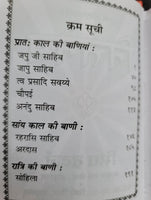 क्रम सूची
प्रातः काल की बाणियां :
जपु जी साहिब
जापु साहिब
त्व प्रसादि सवय्ये
चौपई
अनंदु साहिब
सांय काल की बाणी :
रहरासि साहिब
अरदास
रात्रि की बाणी :
सोहिला